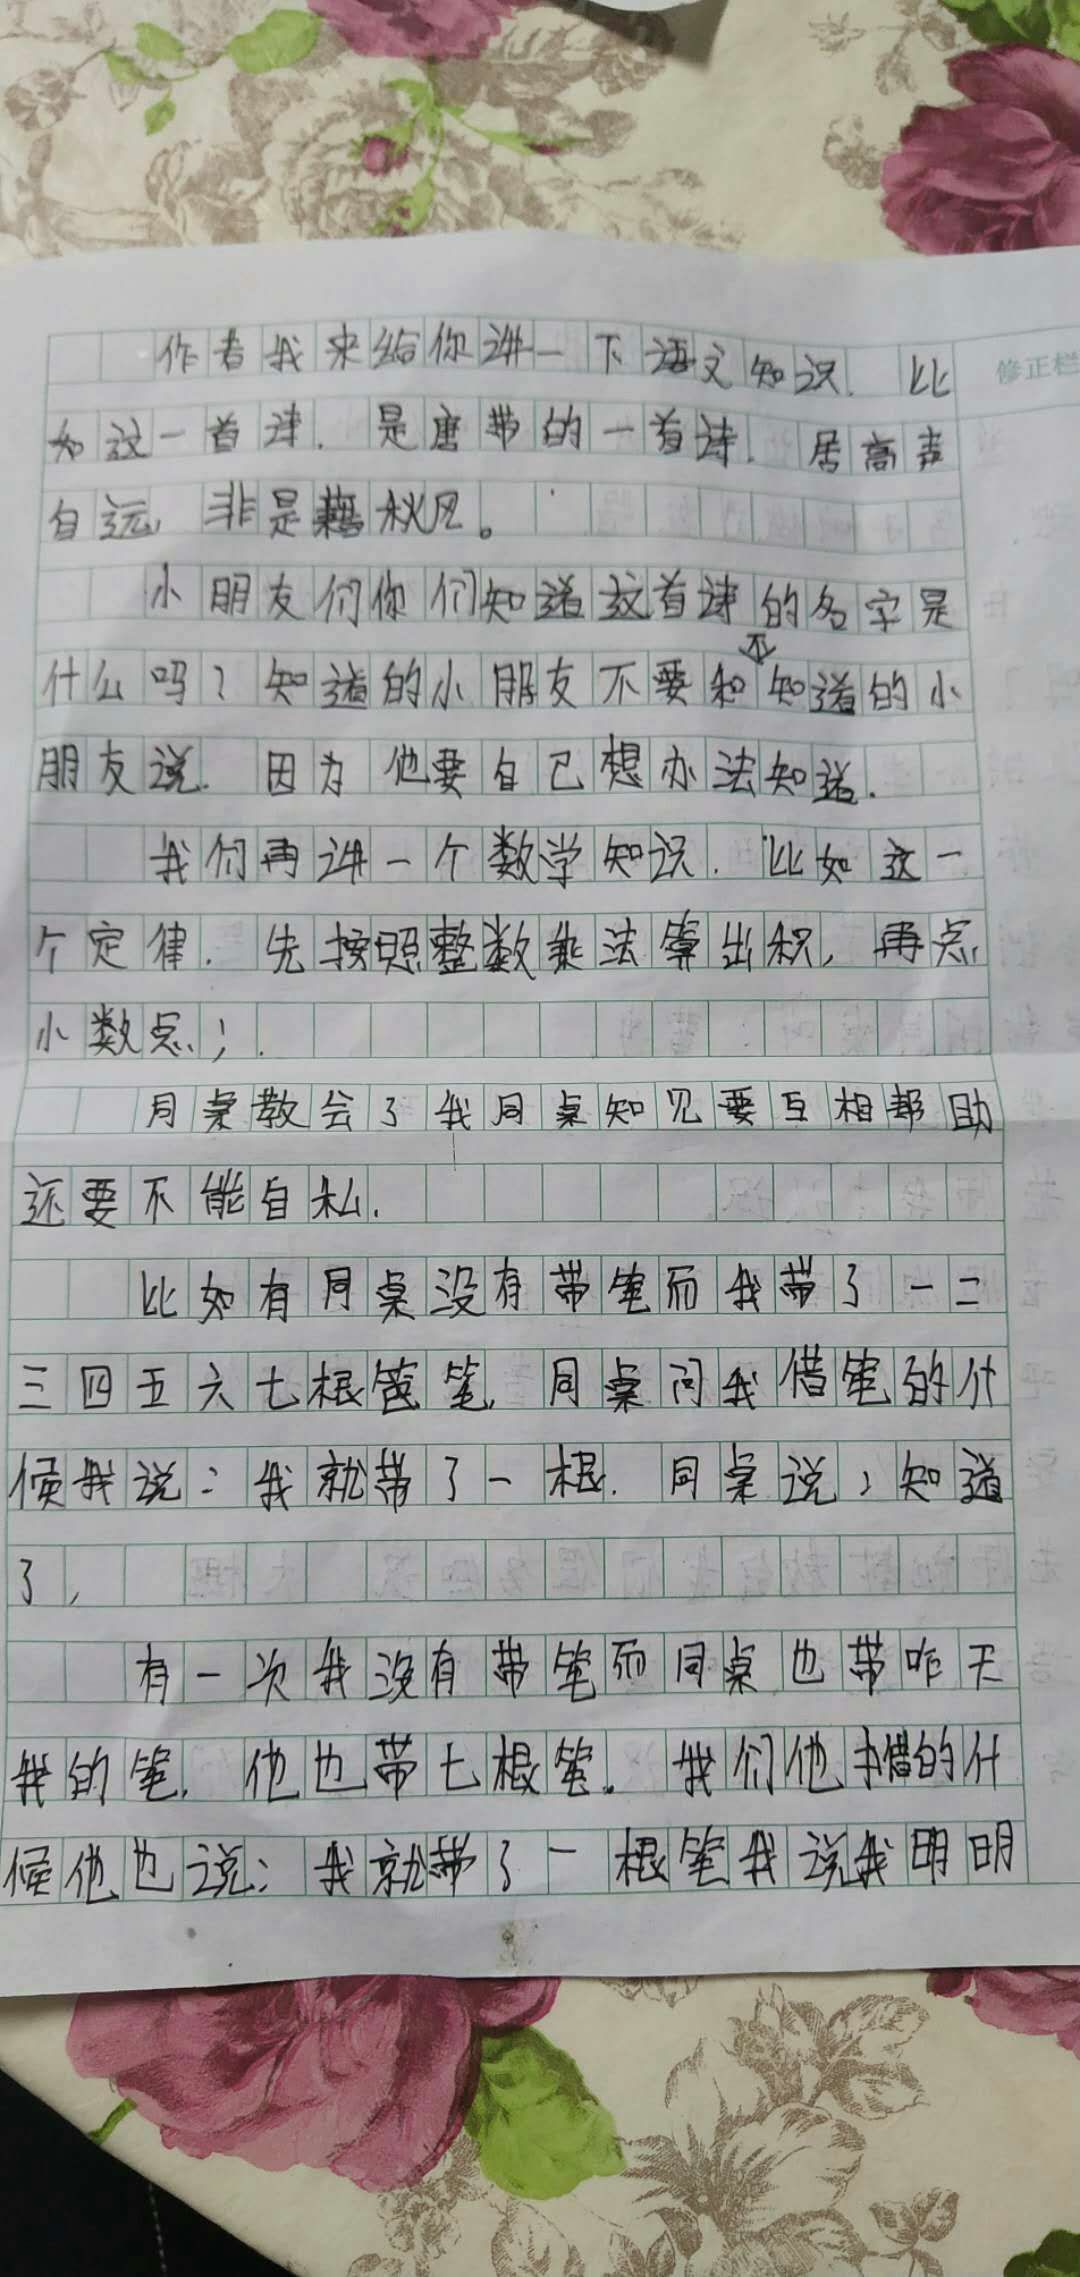 作者我来给你讲一下语文知识.比
修正栏
如这一首诗.是唐带的一首诗.居高声
自远,非是藉秋风。
小朋友们你们知道这首诗的名字是
什么吗?知道的小朋友不要和不知道的小
朋友说.因为他要自己想办法知道.
我们再讲一个数学知识.比如这一
个定律.先按照整数乘法算出积,再点
小数点;
同桌教会了我同桌知见要互相帮助
还要不能自私.
比如有同桌没有带笔而我带了一二
三四五六七根笔.同桌问我借笔的什
候我说:我就带了一根.同桌说,知道
了,
有一次我没有带笔而同桌也带咋天
我的笔.他也带七根笔。我们他借的什
候他也说:我就带了一根笔我说我明明